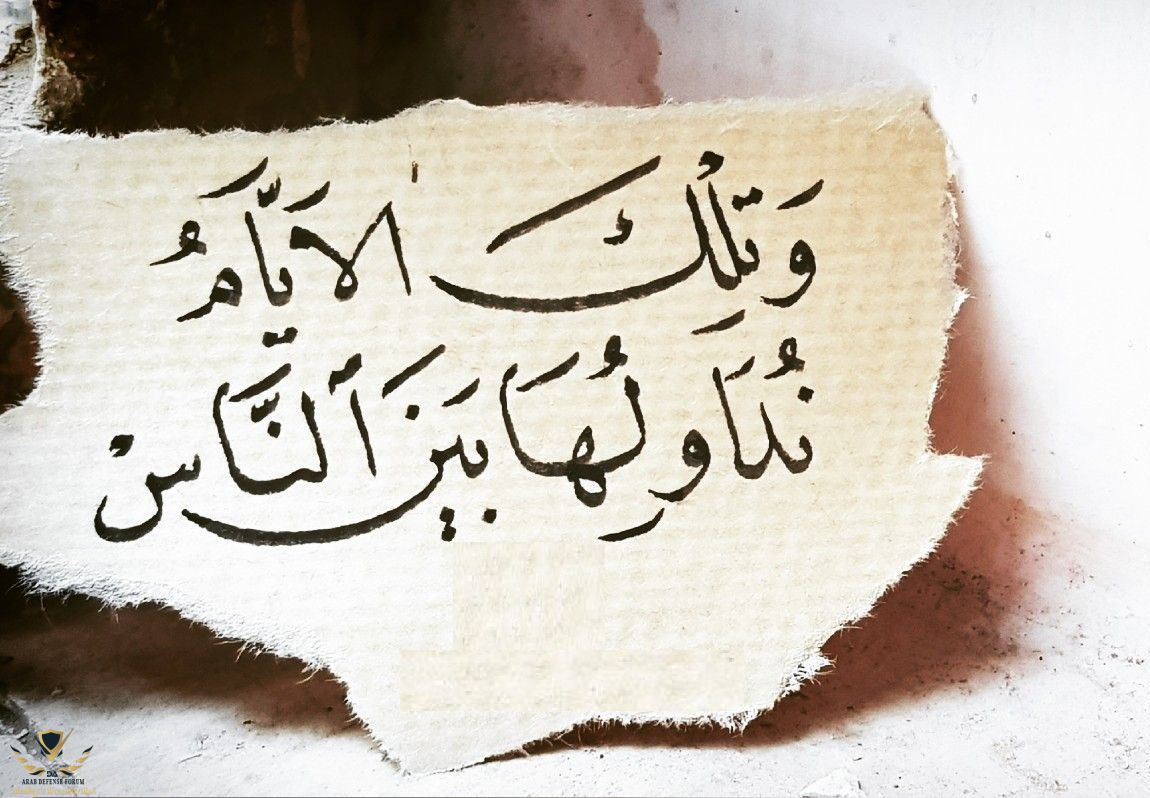 وَتِلْكَ الاَيَّامُ
نُدَاوِلُهَا بَيْنَ ٱلنَّاسْ
ARAB DEFENSE FORUM